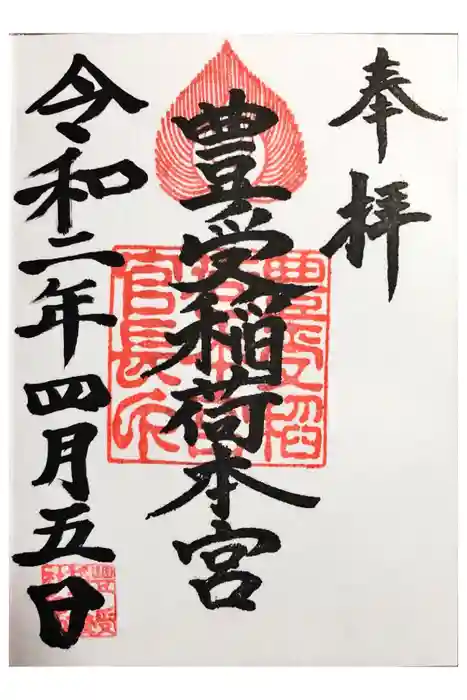 奉拝
豊受稲荷本宮
令和二年四月五日